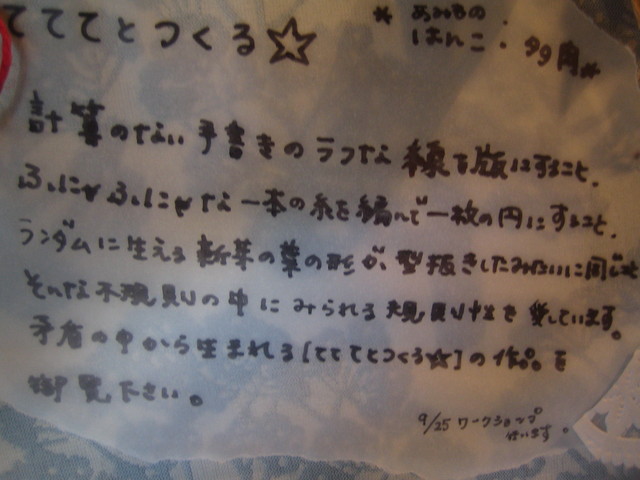 てててとつくる☆
* あみもの
はんこ・多角*
計算のない手書きのラフな線を版にすること。
ふにゃふにゃな一本の糸を編んで一枚の円にすること。
ランダムに生える新芽の葉の形が、型抜きしたみたいに同じこと
そんな不規則の中にみられる規則性を愛しています。
矛盾の中から生まれる[てててとつくる☆]の作品を
御覧下さい。
9/25 ワークショップ
行います。